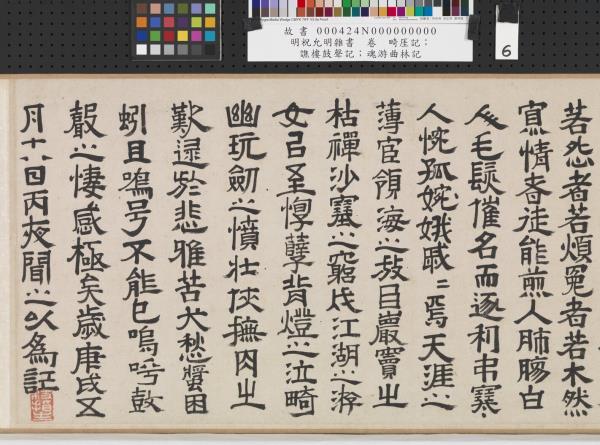 故書 000424N000000000
明祝允明雜書 卷 畸壓記;
譙樓鼓聲記; 魂游曲林記
6
若怨者若煩冤者若木然
寡情者徒能煎人肺腸白
人毛髮催名而逐利弔寒
人惋孤娥戚〻焉天涯之
薄宦嶺海之放臣巖竇之
枯禪沙塞之窮戍江湖之游
女以至惸孽背燈之泣畸
幽玩劒之憤壯俠撫肉之
歎於悲雅苦犬愁蛩困
蚓且嗚号不能已嗚呼鼓
聲之悽感極矣歲庚戌五
月十八日丙夜聞之以為記